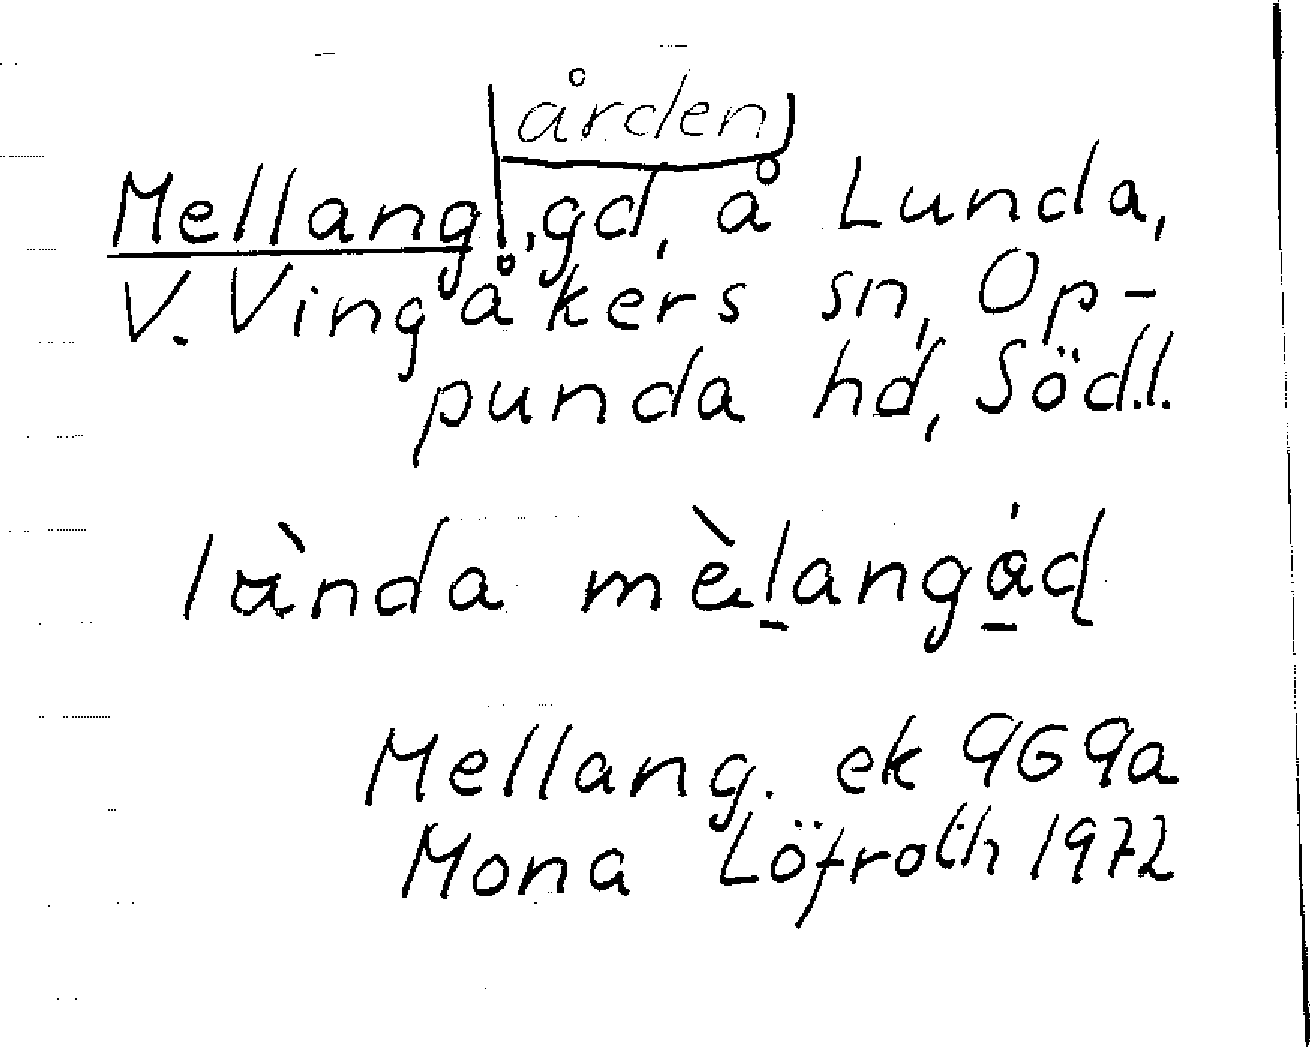 ården
Mellang., gd, å Lunda,
V. Vingåkers sn, Op-
punda hd, Södl.
lànda mèlangåd
Mellang. ek 9G9a
Mona Löfroth 1972